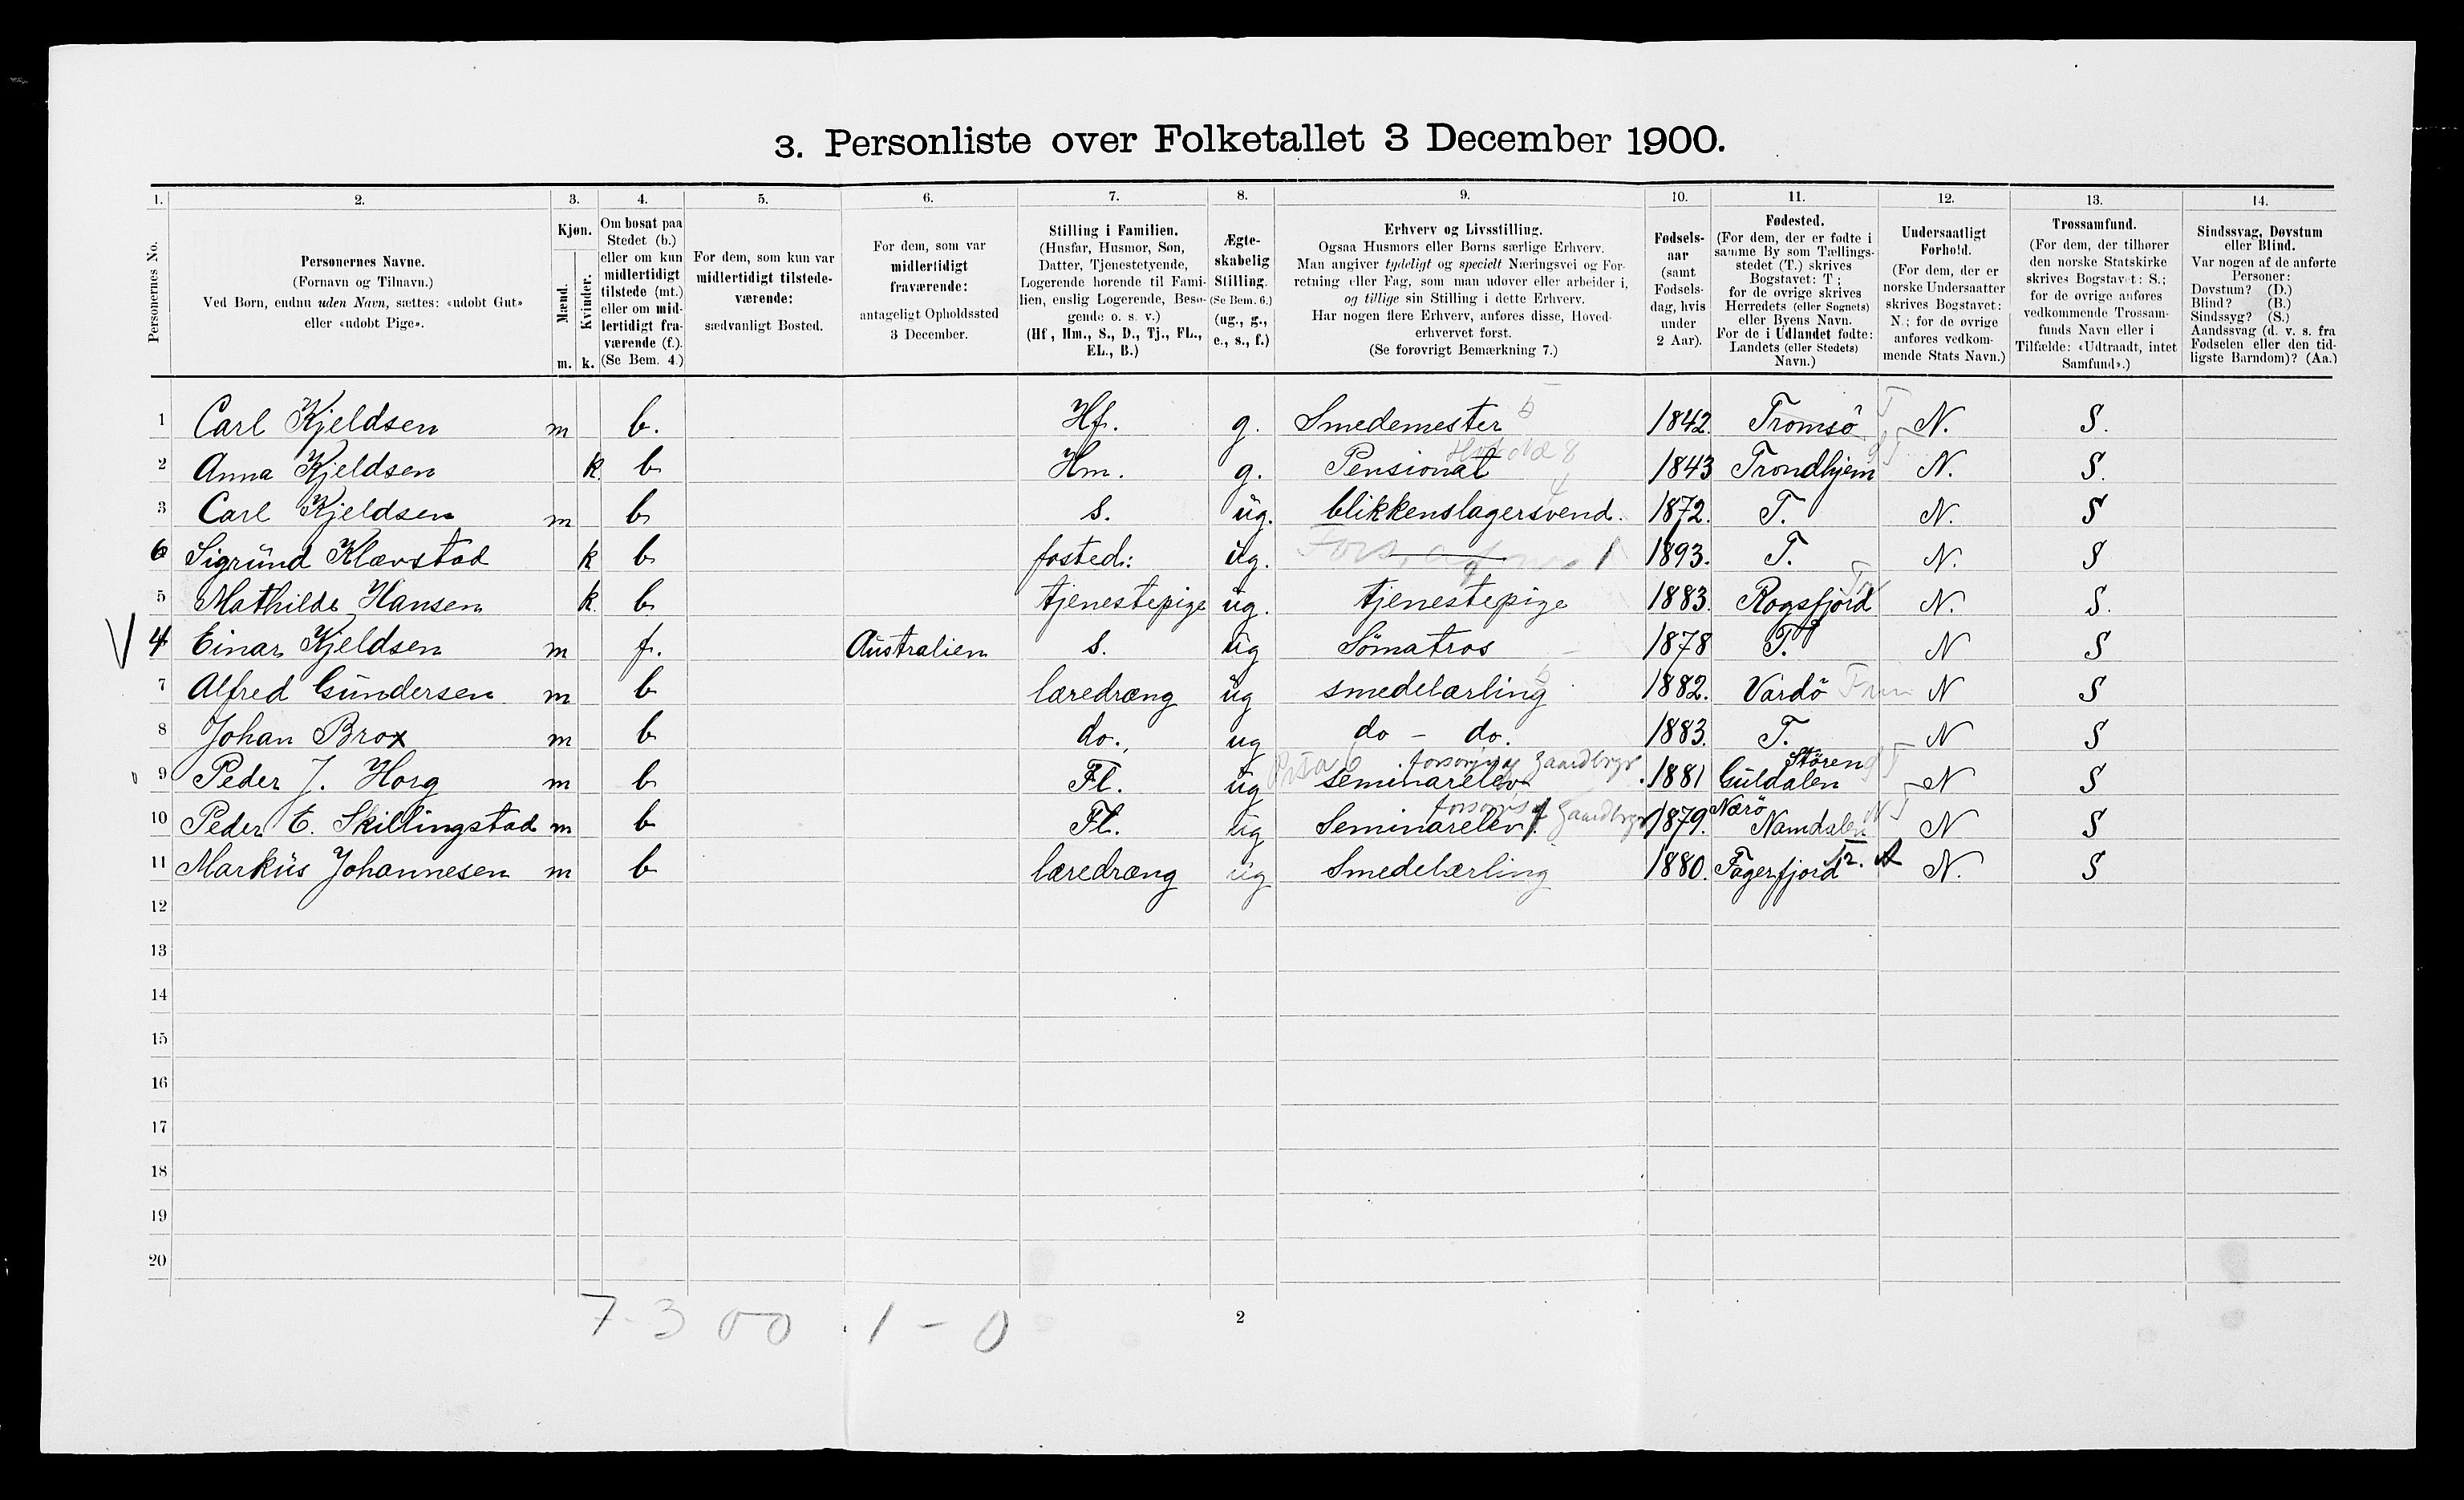 3. Personliste over Folketallet 3 December 1900.
1. 2. 3. 4. 5. 6. 7. 8. 9. 10. 11. 12. 13. 14.
Personernes No.
Personernes Navne.
(Fornavn og Tilnavn.)
Ved Børn, endnu uden Navn, sættes: «udøbt Gut»
eller «udøbt Pige».
Kjøn.
Mænd.
Kvinder.
m. k.
Om bosat paa
Stedet (b.)
eller om kun
midlertidigt
tilstede (mt.)
eller om mid-
lertidigt fra-
værende (f.).
(Se Bem. 4.)
For dem, som kun var
midlertidigt tilstede-
værende:
sædvanligt Bosted.
For dem, som var
midlertidigt
fraværende:
antageligt Opholdssted
3 December.
Stilling i Familien.
(Husfar, Husmor, Søn,
Datter, Tjenestetyende,
Logerende hørende til Fami-
lien, enslig Logerende, Besø-
gende o. s. v.)
(Hf, Hm., S., D., Tj., FL.,
EL., B.)
Ægte-
skabelig
Stilling.
(Se Bem. 6.)
(ug., g.,
e., s., f.)
Erhverv og Livsstilling.
Ogsaa Husmors eller Børns særlige Erhverv.
Man angiver tydeligt og specielt Næringsvei og For-
retning eller Fag, som man udøver eller arbeider i,
og tillige sin Stilling i dette Erhverv.
Har nogen flere Erhverv, anføres disse, Hoved-
erhvervet først.
(Se forøvrigt Bemærkning 7.)
Fødsels-
aar
(samt
Fødsels-
dag, hvis
under
2 Aar).
Fødested.
(For dem, der er fødte i
samme By som Tællings-
stedet (T.) skrives
Bogstavet: T;
for de øvrige skrives
Herredets (eller Sognets)
eller Byens Navn.
For de i Udlandet fødte:
Landets (eller Stedets)
Navn.)
Undersaatligt
Forhold.
(For dem, der er
norske Undersaatter
skrives Bogstavet:
N.; for de øvrige
anføres vedkom-
mende Stats Navn.)
Trossamfund.
(For dem, der tilhører
den norske Statskirke
skrives Bogstavet: S.;
for de øvrige anføres
vedkommende Trossam-
funds Navn eller i
Tilfælde: «Udtraadt, intet
Samfund».)
Sindssvag, Døvstum
eller Blind.
Var nogen af de anførte
Personer:
Døvstum? (D.)
Blind? (B.)
Sindssyg? (S.)
Aandssvag (d. v. s. fra
Fødselen eller den tid-
ligste Barndom)? (Aa.)
1 Carl Kjeldsen m b. Hf. g. Smedemester 1842. Tromsö N. S.
2 Anna Kjeldsen k. b Hm. g. Pensionat 1843 Trondhjem N. S.
3 Carl Kjeldsen m b S. ug. blikkenslagersvend. 1872. T. N. S
6 Sigrund Klævstad k b fosted: ug. 1893. T. N. S
5 Mathilde Hansen k. b tjenestepige ug. tjenestepige 1883. Rogsfjord N. S.
V 4 Einar Kjeldsen m f. Australien S. ug Sömatros 1878 T. N S
7 Alfred Gundersen m b læredræng ug smedelærling 1882. Vardö N S
8 Johan Brox m b do. ug do - do. 1883. T. N S
9 Peder J. Horg m b Fl. ug seminarelev 1881 Guldalen Stören N S
10 Peder E. Skillingstad m b Fl. ug Seminarelev 1879. Nærö Namdalen N S
11 Markus Johannesen m b læredræng ug Smedelærling 1880. Fagerfjord N. S
12
13
14
15
16
17
18
19
20
7 - 3 00 1 - 0
2